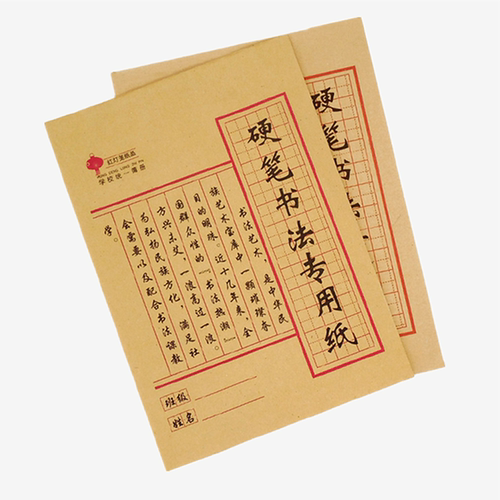 硬笔书法专用纸
红灯笼纸品
HONG DENG LONG ZHI PIN
学校统一
书法艺术，是中华民
族艺术宝库中一颗璀璨夺
目的明珠。近十几年来，全
国群众性的“书法热潮”
方兴未艾，一浪高过一浪。
为弘扬民族文化，满足社
会需要以及配合书法课教
学。
班级
姓名
硬笔书法专用纸